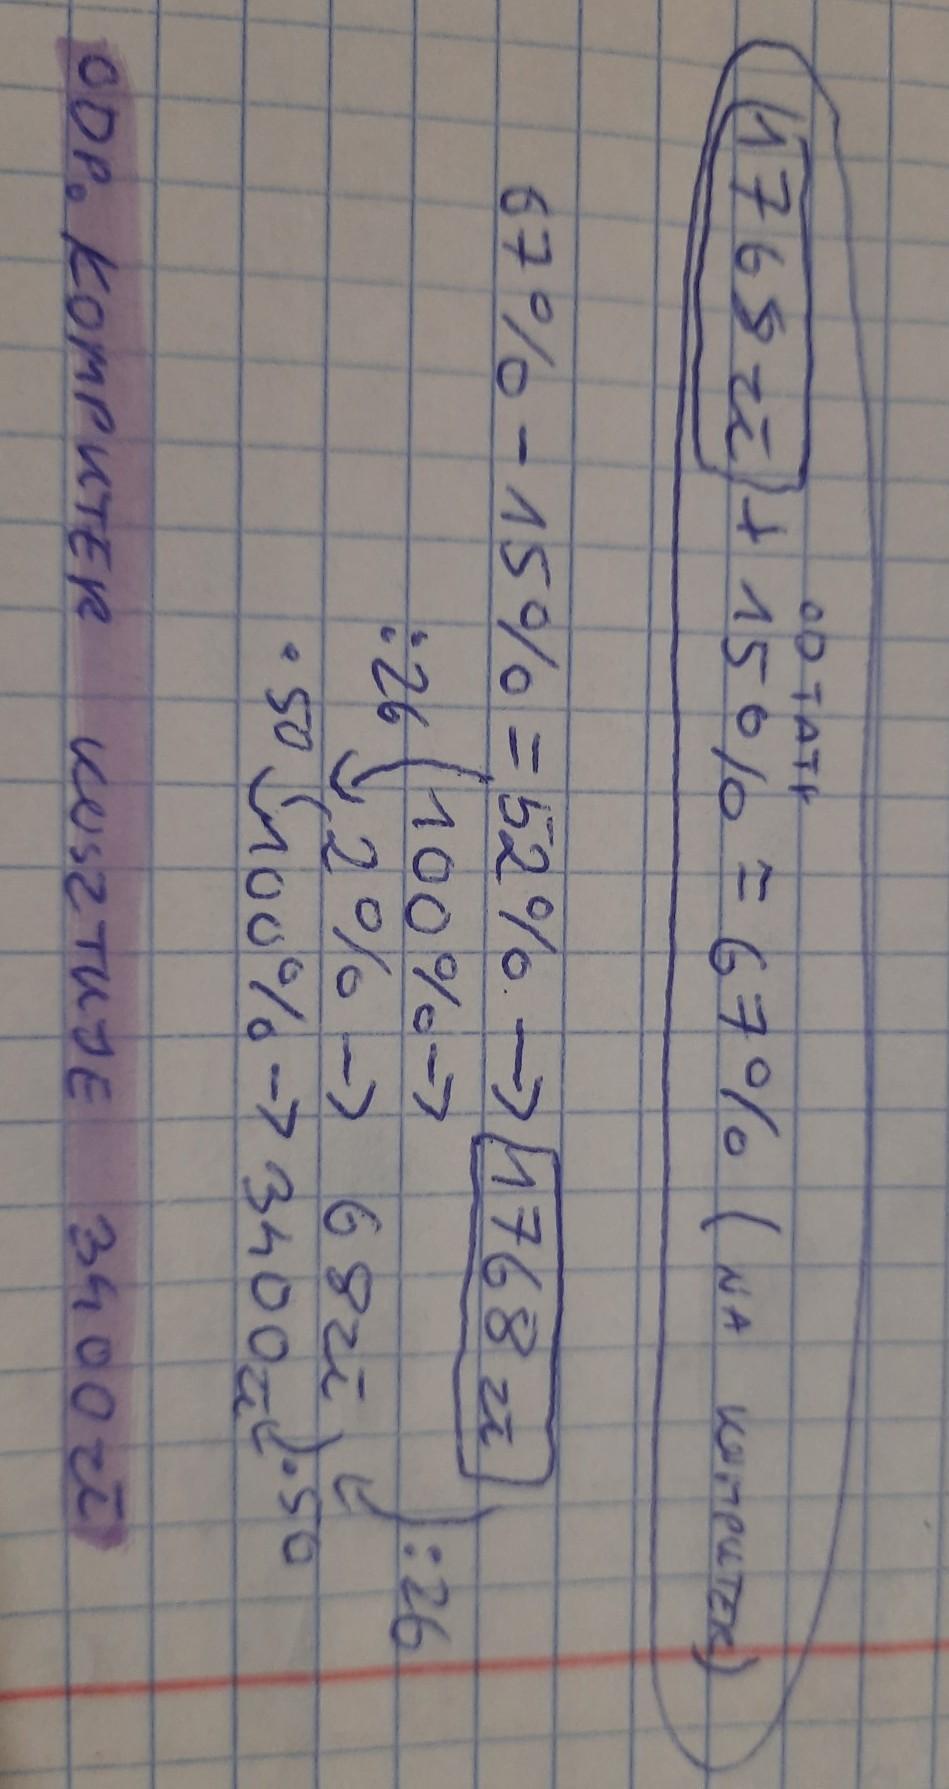 OD TATY
1768 zł + 15% = 67% (NA KOMPUTER)
67% - 15% = 52% → 1768 zł
:26 100% → :26
2% → 68 zł
·50 100% → 3400 zł ·50
ODP. KOMPUTER KOSZTUJE 3400 zł